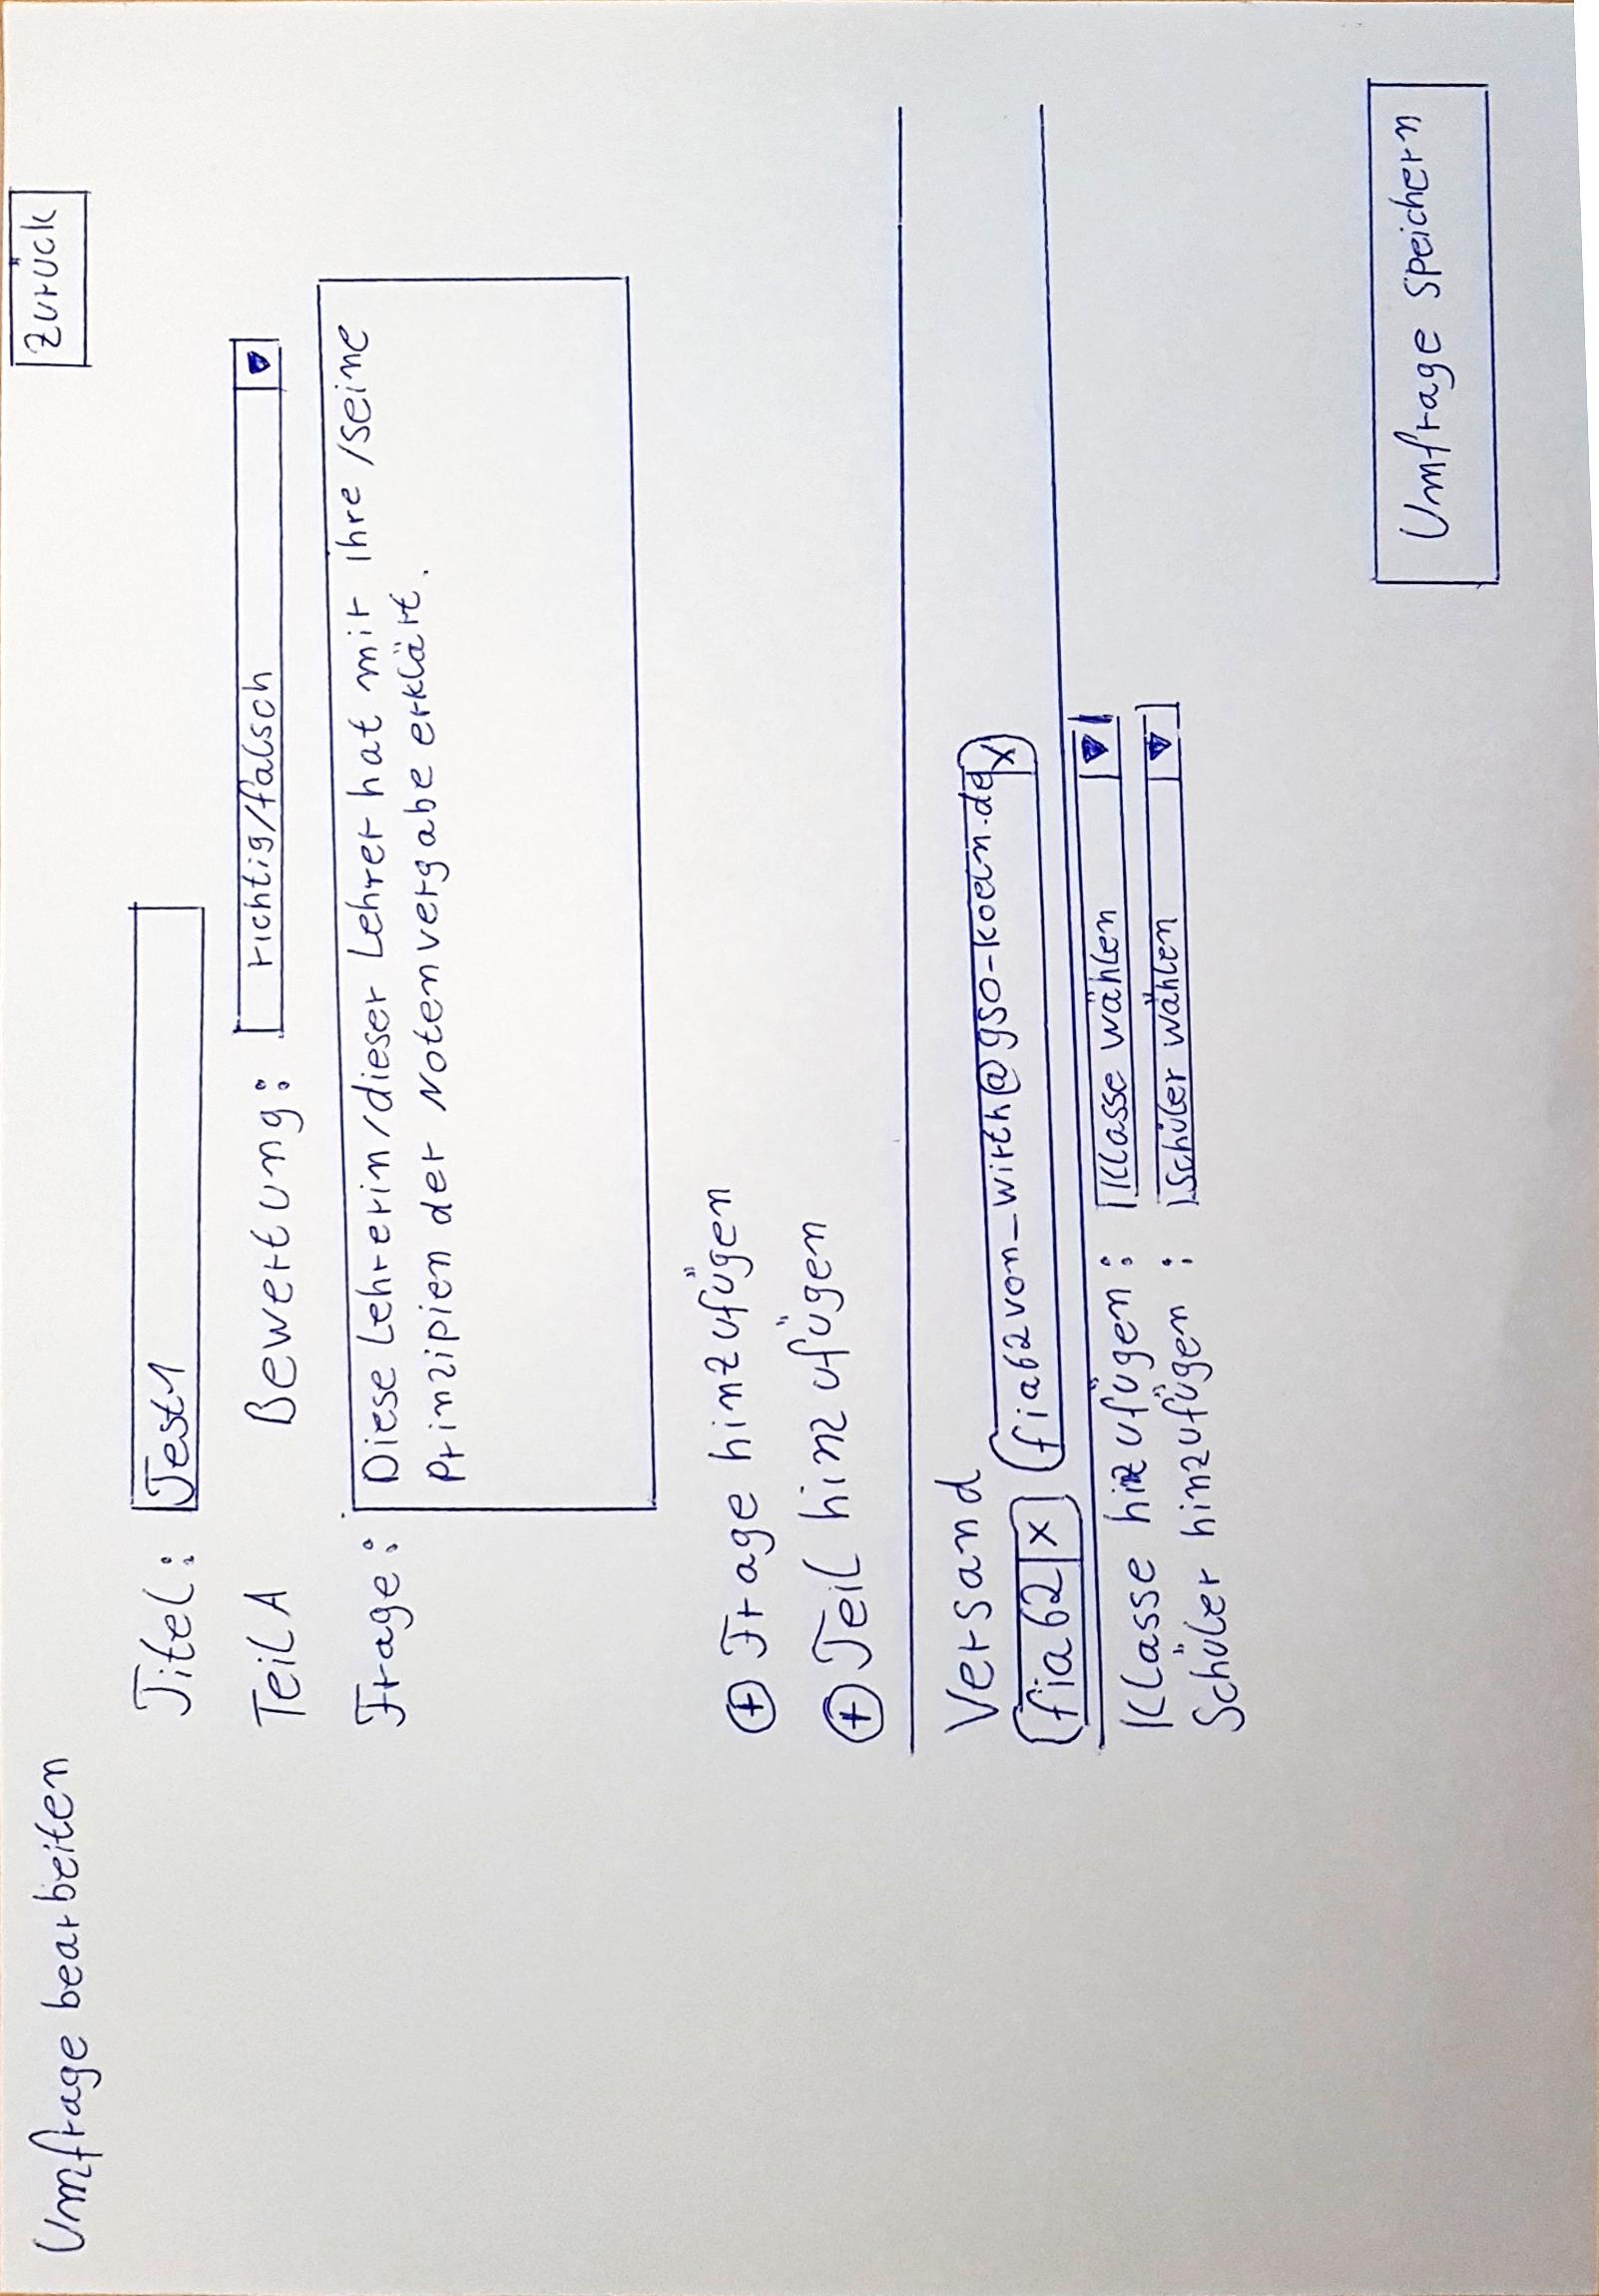 Umfrage bearbeiten
Zurück
Titel: Test1
Teil A Bewertung: richtig/falsch
Frage: Diese Lehrerin/dieser Lehrer hat mir ihre/seine
Prinzipien der Notenvergabe erklärt.
+ Frage hinzufügen
+ Teil hinzufügen
Versand
fia62 x fia62von_wirth@gso-koeln.de x
Klasse hinzufügen: Klasse wählen
Schüler hinzufügen: Schüler wählen
Umfrage speichern